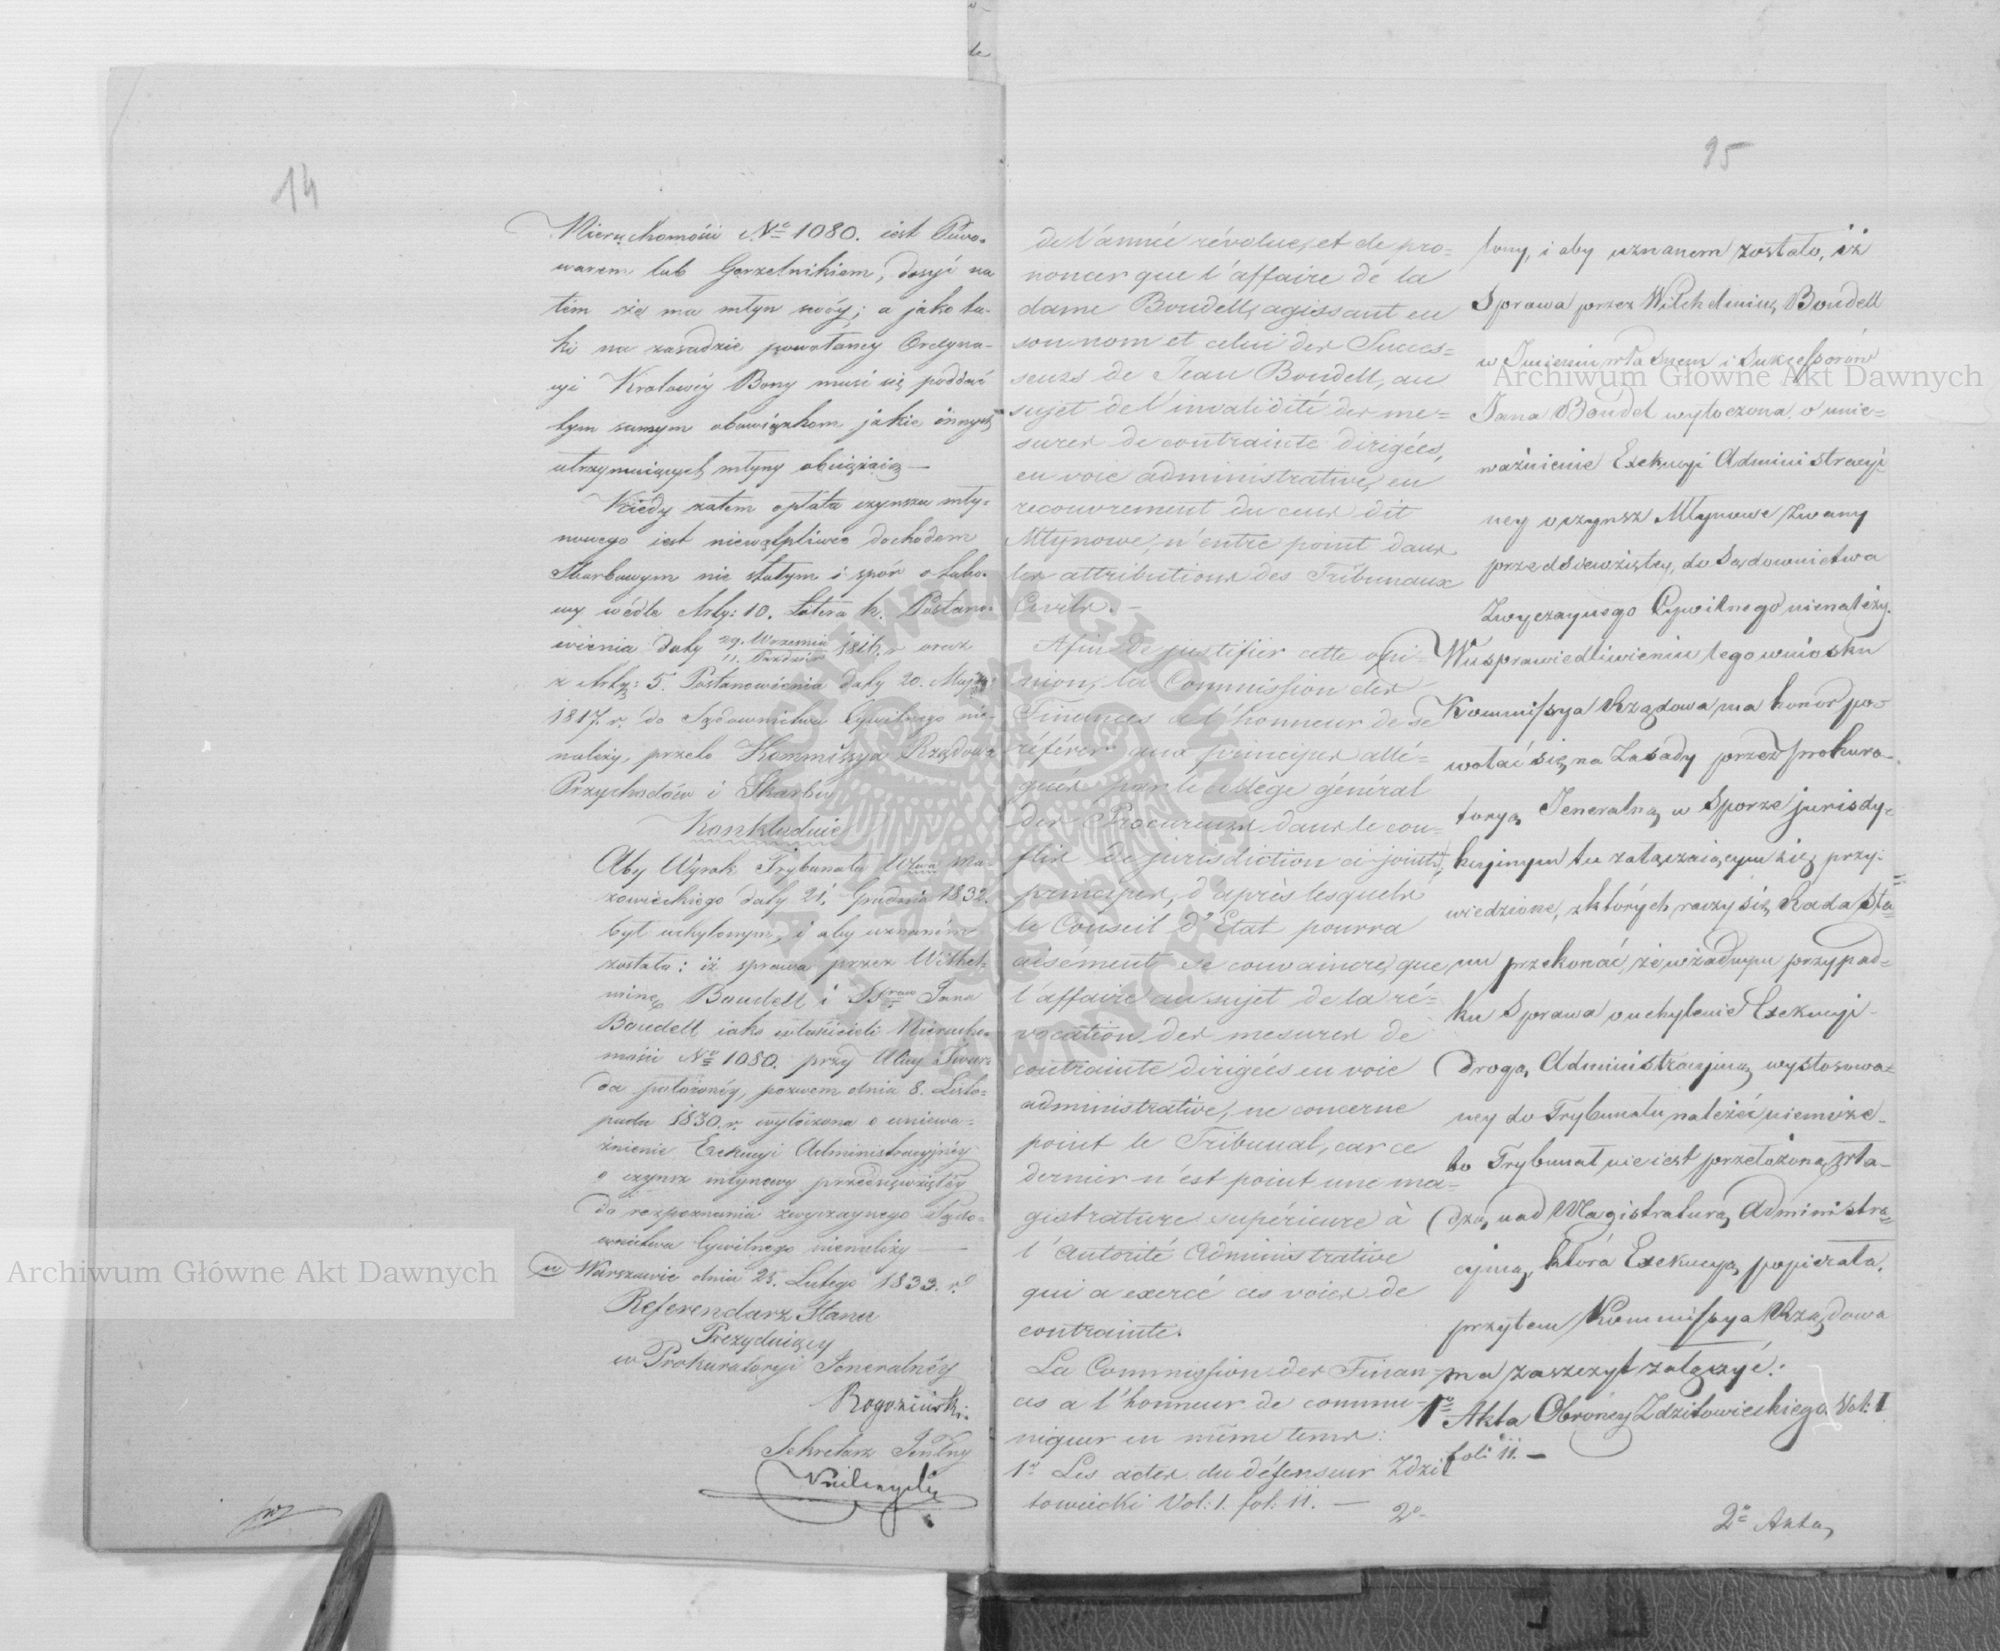 14
Nieruchomości No 1080. iest Piwo-
warem lub Gorzelnikiem, dosyć na
tem że ma młyn swóy; a jako ta-
ki na zasadzie powołanéy Ordyna-
cyi Krolowéy Bony musi się poddać
tym samym obowiązkom jakie innych
utrzymuiących młyny obciążaią —
Kiedy zatem opłata czynszu mły-
nowego iest niewątpliwie dochodem
Skarbowym nie stałym i spór o tako-
wy wedle Arty: 10. Litera h. Postano-
wienia daty 29. Września / 11. Paździer 1816. r oraz
z Arty: 5. Postanowienia daty 20. Maja
1817. r. do Sądownictwa Cywilnego nie
należy, przeto Kommissya Rządowa
Przychodów i Skarbu
Konkluduie
Aby Wyrok Trybunału Wztwa Ma-
zowieckiego daty 21. Grudnia 1832.
był uchylonym, i aby uznaném
zostało: iż sprawa przez Wilhel-
minę Boudell i SSrow Jana
Boudell iako właścicieli Nierucho-
mości No 1080. przy Ulicy Twar-
da położonéy, pozwem dnia 8. Listo-
pada 1830. r. wytoczona o uniewa-
żnienie Exekucyi Administracyjnéy
o czynsz młynowy przedsięwziętéy
do rozpoznania zwyczaynego Sądo-
wnictwa Cywilnego nienależy —
w Warszawie dnia 25. Lutego 1833. r.
Referendarz Stanu
Prezyduiący
w Prokuratoryi Jeneralnéy
Rogoziński.
Sekretarz Jenlny
95
de l'année révolue, et de pro-
noncer que l'affaire de la
dame Boudell, agissant en
son nom et celui des Succes-
seurs de Jean Boudell, au
sujet de l'invalidité des me-
sures de contrainte dirigées,
en voie administrative, en
recouvrement du cens dit
Młynowe, n'entre point dans
les attributions des Tribunaux
Civils. —
Afin de justifier cette opi-
nion, la Commission des
Finances a l'honneur de se
référer aux principes allé-
gués par le collège général
des Procureurs dans le con-
flit de jurisdiction ci-joint,
principes, d'après lesquels
le Conseil d'Etat pourra
aisément se convaincre, que
l'affaire au sujet de la ré-
vocation des mesures de
contrainte dirigées en voie
administrative, ne concerne
point le Tribunal, car ce
dernier n'est point une ma-
gistrature supérieure à
l'Autorité Administrative
qui a exercé ces voies de
contrainte.
La Commission des Finan-
ces a l'honneur de commu-
niquer en même tems:
1o Les actes du défenseur Zdzi
towiecki Vol: 1. fol: 11. —
2o
lony, i aby uznanem zostało, iż
Sprawa przez Wilchelminę Boudell
w Imieniu własnem i Sukcessorów
Jana Boudel wytoczona o unie-
ważnienie Exekucyi Administracyi-
ney o czynsz Młynowe zwany
przedsiewziętey, do Sądownictwa
Zwyczaynego Cywilnego nienależy.
W usprawiedliwieniu tego wniosku
Kommissya Rządowa ma honor po-
wołać się na Zasady przez Prokura-
toryą Jeneralną w Sporze jurisdy-
kcyinym tu załączaiącym się przy-
wiedzione, z których raczy się Rada Sta-
nu przekonać, że w żadnym przypad-
ku Sprawa o uchylenie Exekucyi
drogą Administracyiną wystosowa-
ney do Trybunału należeć niemoże
bo Trybunał nie iest przełożoną wła-
dzą nad Magistraturą Administra-
cyiną która Exekucyą popierała.
przytem Kommissya Rządowa
ma zaszczyt załączyć:
1o Akta Obrońcy Zdzitowieckiego Vol: I
foli 11. —
2o Akta
Archiwum Główne Akt Dawnych
Archiwum Główne Akt Dawnych
ARCHIWUM GŁÓWNE AKT DAWNYCH